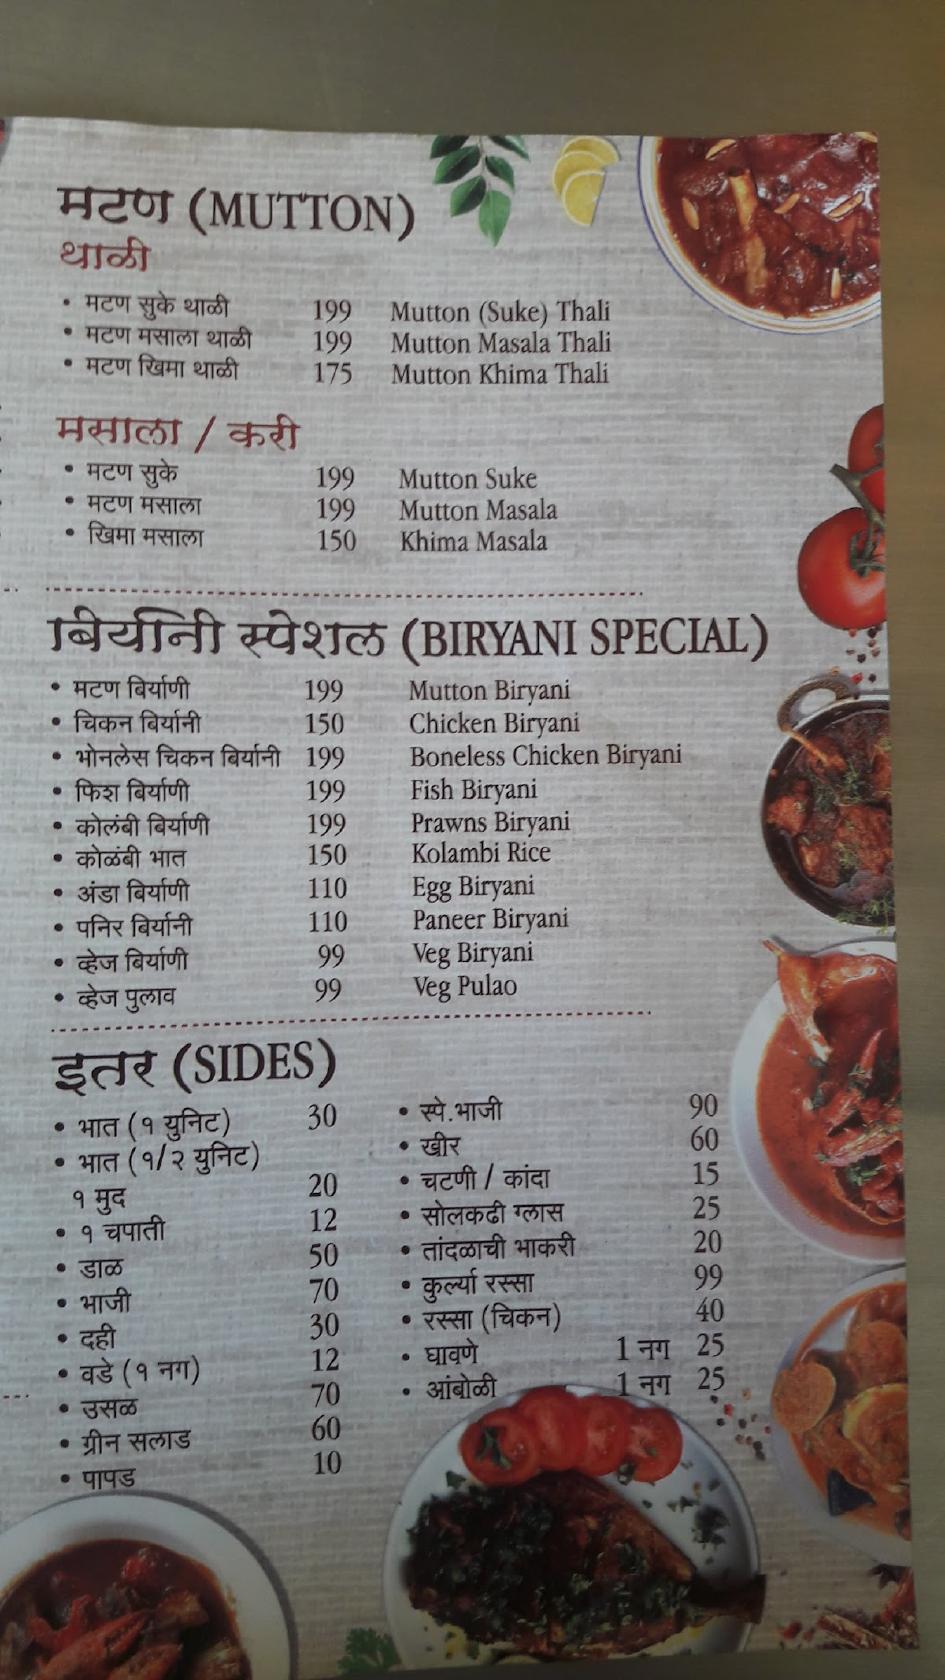 मटण (MUTTON)
थाळी
• मटण सुके थाळी 199 Mutton (Suke) Thali
• मटण मसाला थाळी 199 Mutton Masala Thali
• मटण खिमा थाळी 175 Mutton Khima Thali
मसाला / करी
• मटण सुके 199 Mutton Suke
• मटण मसाला 199 Mutton Masala
• खिमा मसाला 150 Khima Masala
बिर्यानी स्पेशल (BIRYANI SPECIAL)
• मटण बिर्याणी 199 Mutton Biryani
• चिकन बिर्यानी 150 Chicken Biryani
• भोनलेस चिकन बिर्यानी 199 Boneless Chicken Biryani
• फिश बिर्याणी 199 Fish Biryani
• कोलंबी बिर्याणी 199 Prawns Biryani
• कोळंबी भात 150 Kolambi Rice
• अंडा बिर्याणी 110 Egg Biryani
• पनिर बिर्यानी 110 Paneer Biryani
• व्हेज बिर्याणी 99 Veg Biryani
• व्हेज पुलाव 99 Veg Pulao
इतर (SIDES)
• भात (१ युनिट) 30
• भात (१/२ युनिट)
१ मुद 20
• १ चपाती 12
• डाळ 50
• भाजी 70
• दही 30
• वडे (१ नग) 12
• उसळ 70
• ग्रीन सलाड 60
• पापड 10
• स्पे.भाजी 90
• खीर 60
• चटणी / कांदा 15
• सोलकढी ग्लास 25
• तांदळाची भाकरी 20
• कुर्ल्या रस्सा 99
• रस्सा (चिकन) 40
• घावणे 1 नग 25
• आंबोळी 1 नग 25